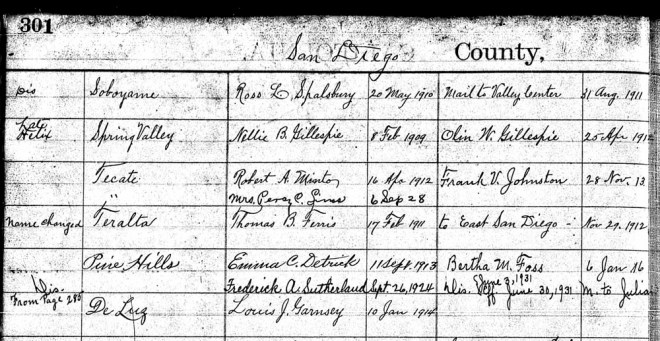 301
San Diego County,
Dis Soboyame Ross L. Spalsbury 20 May 1910 Mail to Valley Center 31 Aug. 1911
Late Helix Spring Valley Nellie B. Gillespie 8 Feb 1909 Olin W. Gillespie 25 Apr 1912
Tecate Robert A. Minto, 16 Apr 1912 Frank V. Johnston 28 Nov. 13
" Mrs. Percy C. 6 Sep 28
Name changed Teralta Thomas B. Ferris 17 Feb 1911 to East San Diego - Nov 29. 1912
Pine Hills Emma C. Detrick 11 Sept. 1913 Bertha M. Foss 6 Jan 16
Dis. Frederick A. Sutherland Sept 26, 1924 Dis. June 3, 1931 Eff June 30, 1931 M. to Julian
From Page 285 De Luz Louis J. Garnsey 10 Jan 1914